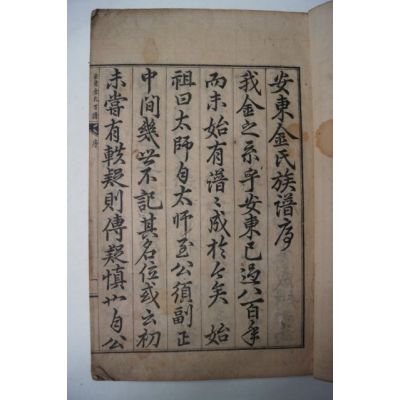 安東金氏族譜序
我金之系乎安東已過八百年
而未始有譜〻成於今矣〻始
祖曰太師自太師至公須副正
中間幾世不記其名位或云初
未嘗有軼疑則傳疑慎也自公
安東金氏世譜 序